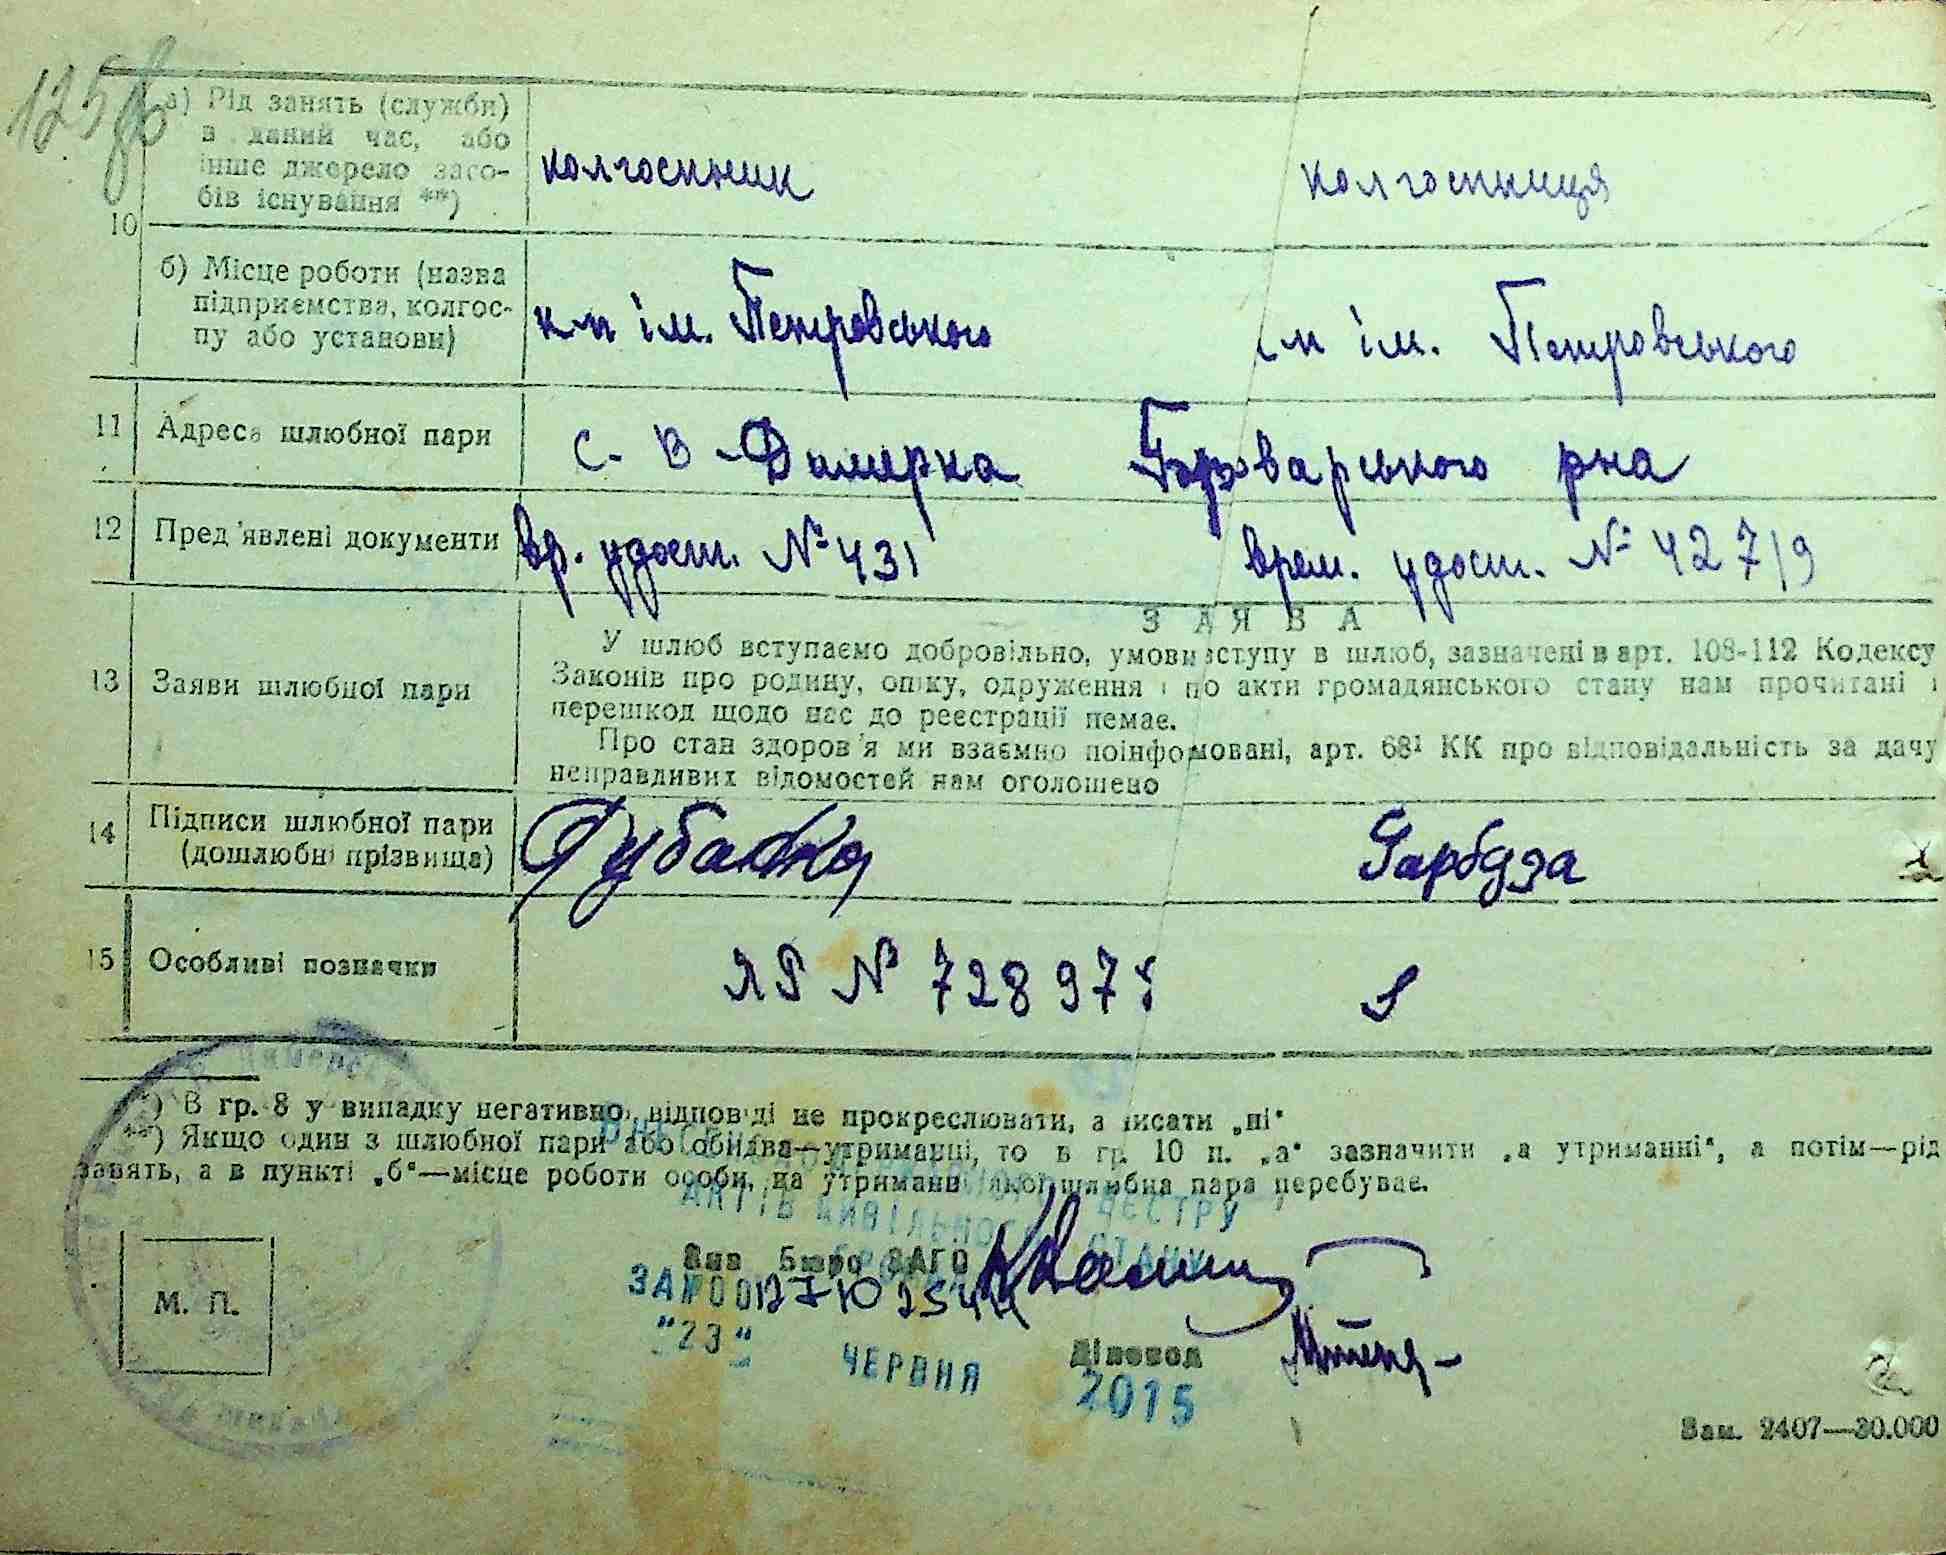 125
а) Рід занять (служби)
в даний час, або
інше джерело засо-
бів існування **)
колгоспник
колгоспниця
10
б) Місце роботи (назва
підприємства, колгос-
пу або установи)
к-п ім. Петровського
ім. Петровського
11
Адреса шлюбної пари
с. В-Димерка Броварського р-на
12
Пред'явлені документи
вр. удост. № 431
врем. удост. № 427/9
ЗАЯВА
13
Заяви шлюбної пари
У шлюб вступаємо добровільно, умови вступу в шлюб, зазначені в арт. 108-112 Кодексу
Законів про родину, опіку, одруження і по акти громадянського стану нам прочитані і
перешкод щодо нас до реєстрації немає.
Про стан здоров'я ми взаємно поінформовані, арт. 68¹ КК про відповідальність за дачу
неправдивих відомостей нам оголошено
14
Підписи шлюбної пари
(дошлюбні прізвища)
Гарбуза
15
Особливі позначки
ЯР № 72897
*) В гр. 8 у випадку негативної відповіді не прокреслювати, а писати „ні“
**) Якщо один з шлюбної пари або обидва—утриманці, то в гр. 10 п. „а“ зазначити „а утриманні“, а потім—рід
занять, а в пункті „б“—місце роботи особи, на утриманні якої шлюбна пара перебуває.
АКТІВ ЦИВІЛЬНОГО СТАНУ
Зав Бюро ЗАГС
ЗА №
"23" ЧЕРВНЯ 2015
Діловод
М. П.
Зам. 2407—30.000